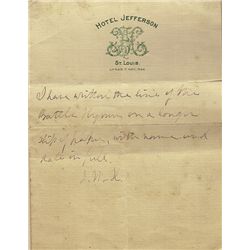 HOTEL JEFFERSON
ST. LOUIS
I have written the lines of the
Battle Hymn on a longer
slip of paper, with name and
date in full.